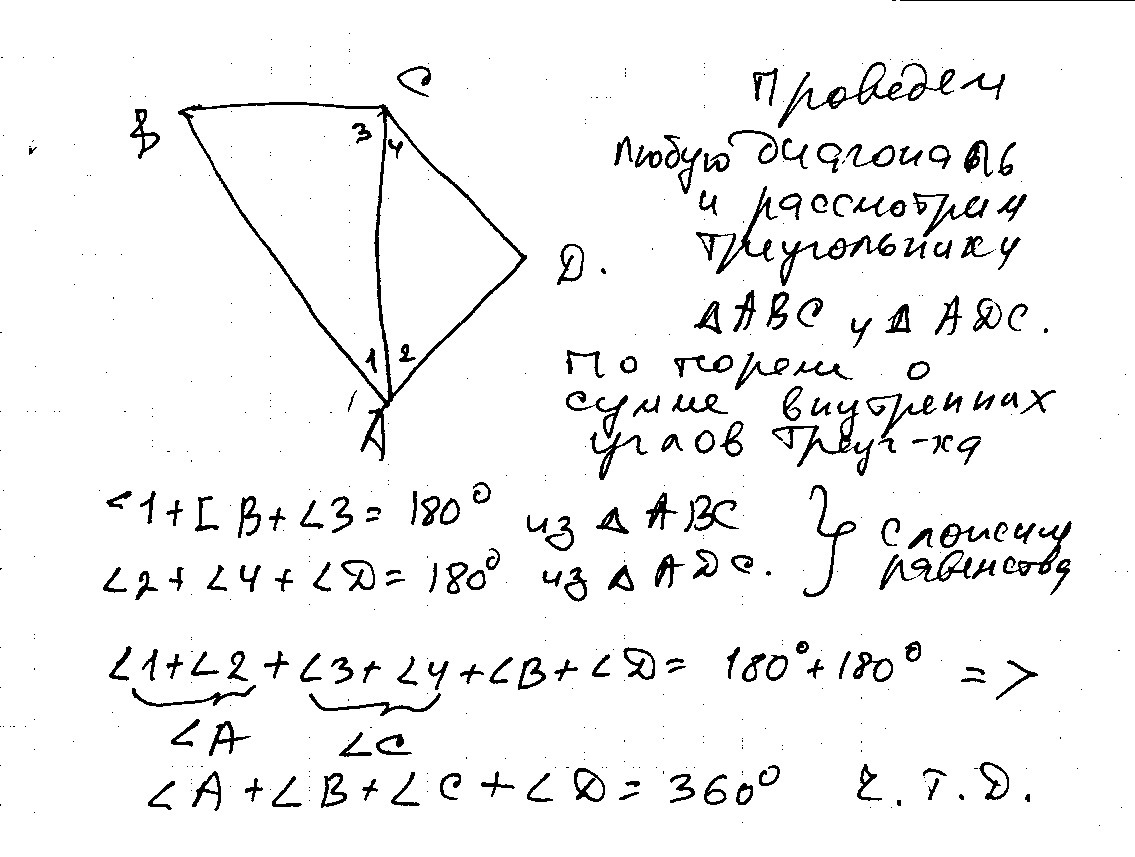 C
B
3 4
D.
1 2
A
Проведем
любую диагональ
и рассмотрим
треугольники
ΔABC и Δ ADC.
По теорем о
сумме внутренних
углов треуг-ка
∠1+[ B+∠3= 180° из Δ ABC
∠2+ ∠4+ ∠D= 180° из Δ ADC.
} сложим
равенства
∠1+∠2+∠3+∠4+∠B+∠D= 180°+180° =>
∠A ∠C
∠A+∠B+∠C+∠D= 360° Ч.Т.Д.